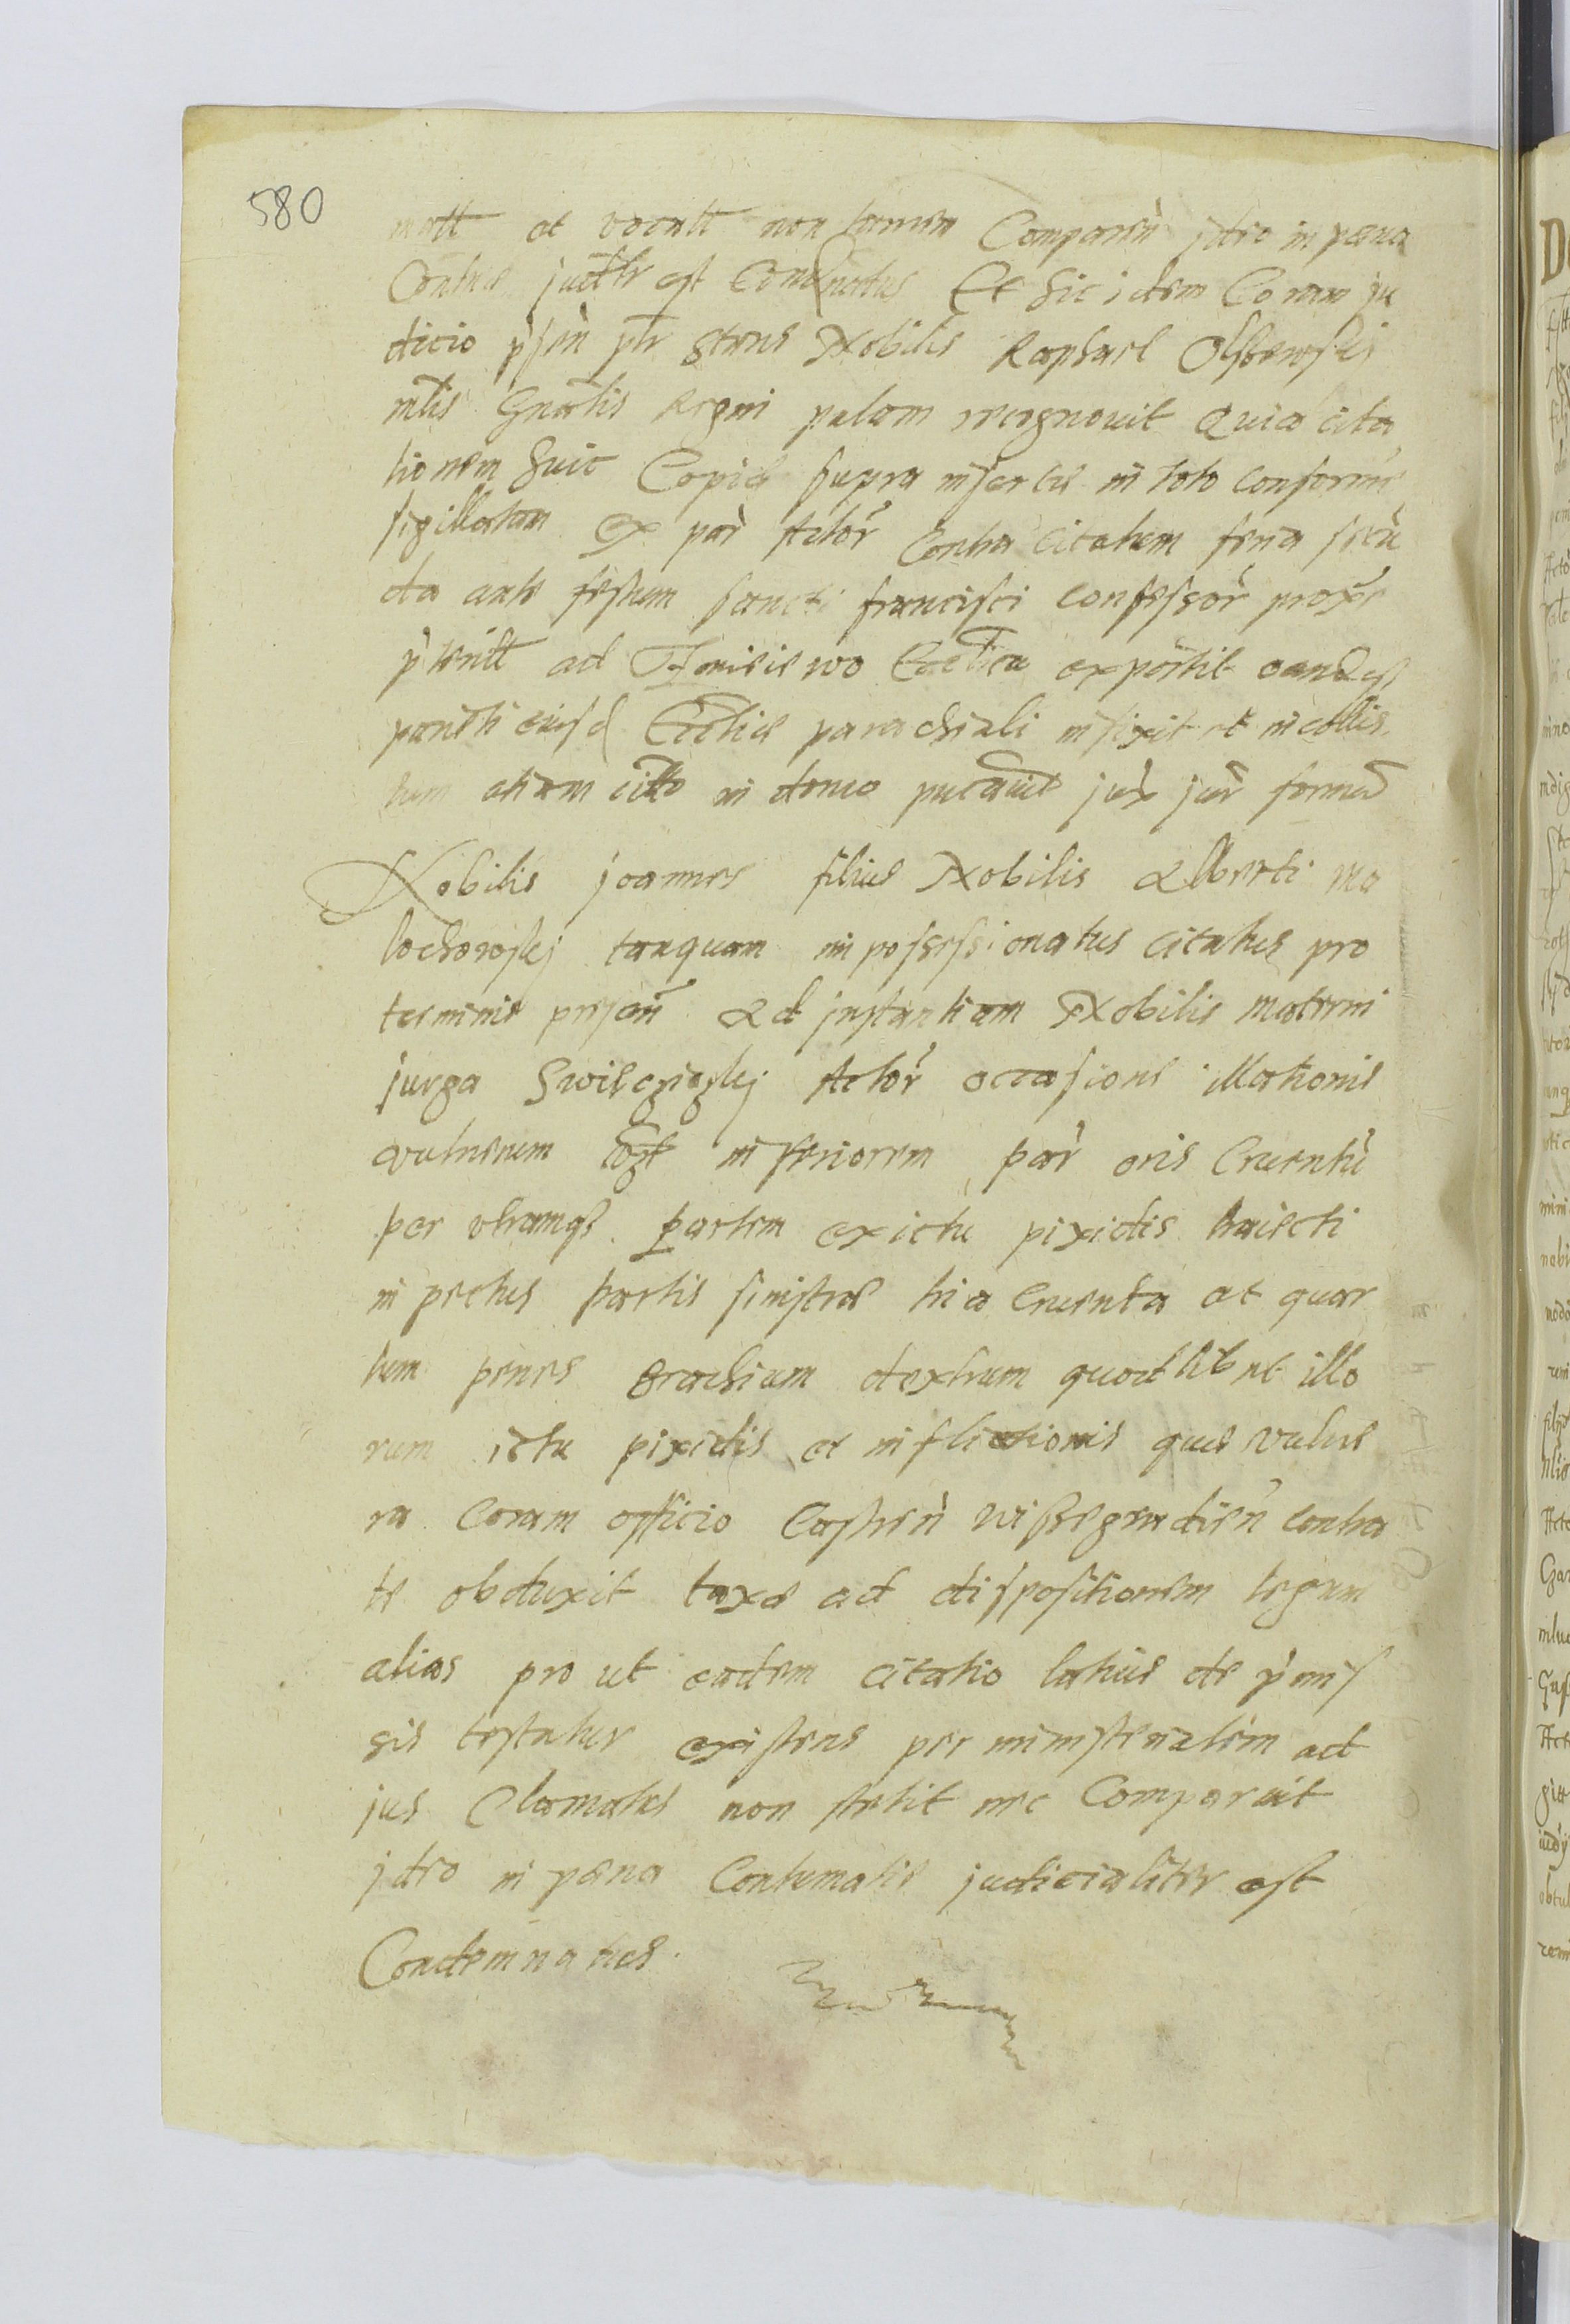 580
matt et vocatt non tamen Comparen jdeo in pena
Contuc judtr est Condnatus Et Sic idem Coram ju
dicio psen pltr Stans Nobilis Raphael Olszewski
mtis Gnalis Regni palam recognovit Quia cita
tionem huic Copie supra inserte in toto conforme
sigillatam ex par Actor Contra Citatum feria secu
da ante festum sancti francisci confessor proxe
pteritt ad Ecclia exportit eandqz
parieti eiusd Ecclie parochiali infixit et in collis
tum etiam citto in domo jux jur formad
Nobilis joannes filius Nobilis Alberti ma
lochowskj tanquam impossessionatus citatus pro
terminis presen Ad jnstantiam Nobilis materni
jurga Actor occasione illationis
vulnerum in feriorem par oris Cruentu
per vtramqz partem ex ictu pixidis traiecti
in pectus partis sinistre tria Cruenta et quar
tum penes Brachium dextrum quodlibet illo
rum ictu pixidis et inflictionis que vulne
ra Coram officio Castren wissegradien contra
te obduxit taxe ad dispositionem legum
alias pro ut eadem citatio latius de pmis
sis testatur existens per ministerialem ad
jus Clamatus non stetit nec Comparuit
jdeo in pena Contumatie judicialiter est
Condemnatus.